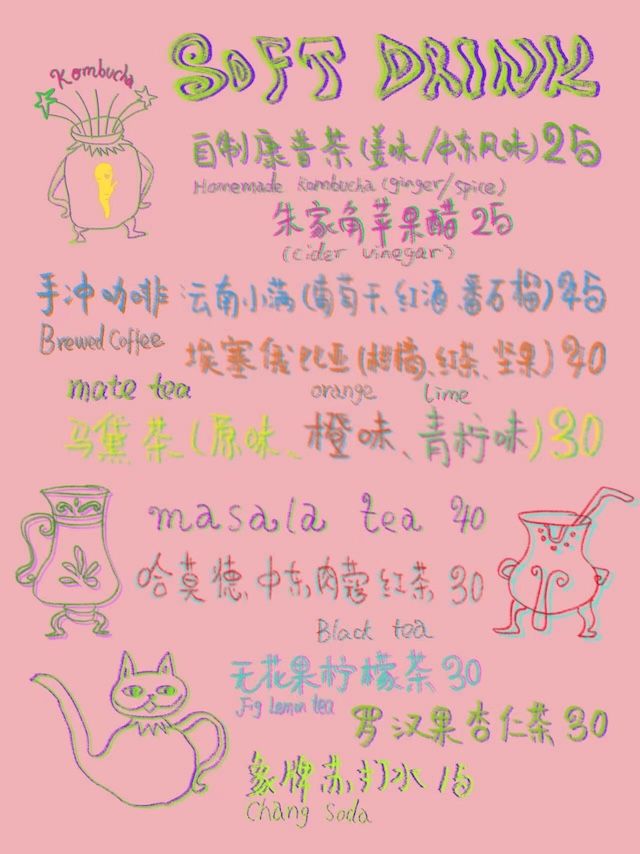 Kombucha
SOFT DRINK
自制康普茶(姜味/中东风味)25
Homemade Kombucha (ginger/spice)
朱家角苹果醋 25
(cider vinegar)
手冲咖啡 云南小满(葡萄干、红酒、番石榴)45
Brewed Coffee
埃塞俄比亚(柑橘、红茶、坚果)40
mate tea
orange lime
马黛茶(原味、橙味、青柠味)30
masala tea 40
哈莫德中东肉蔻红茶 30
Black tea
无花果柠檬茶 30
Fig Lemon tea
罗汉果杏仁茶 30
象牌苏打水 15
Chang Soda